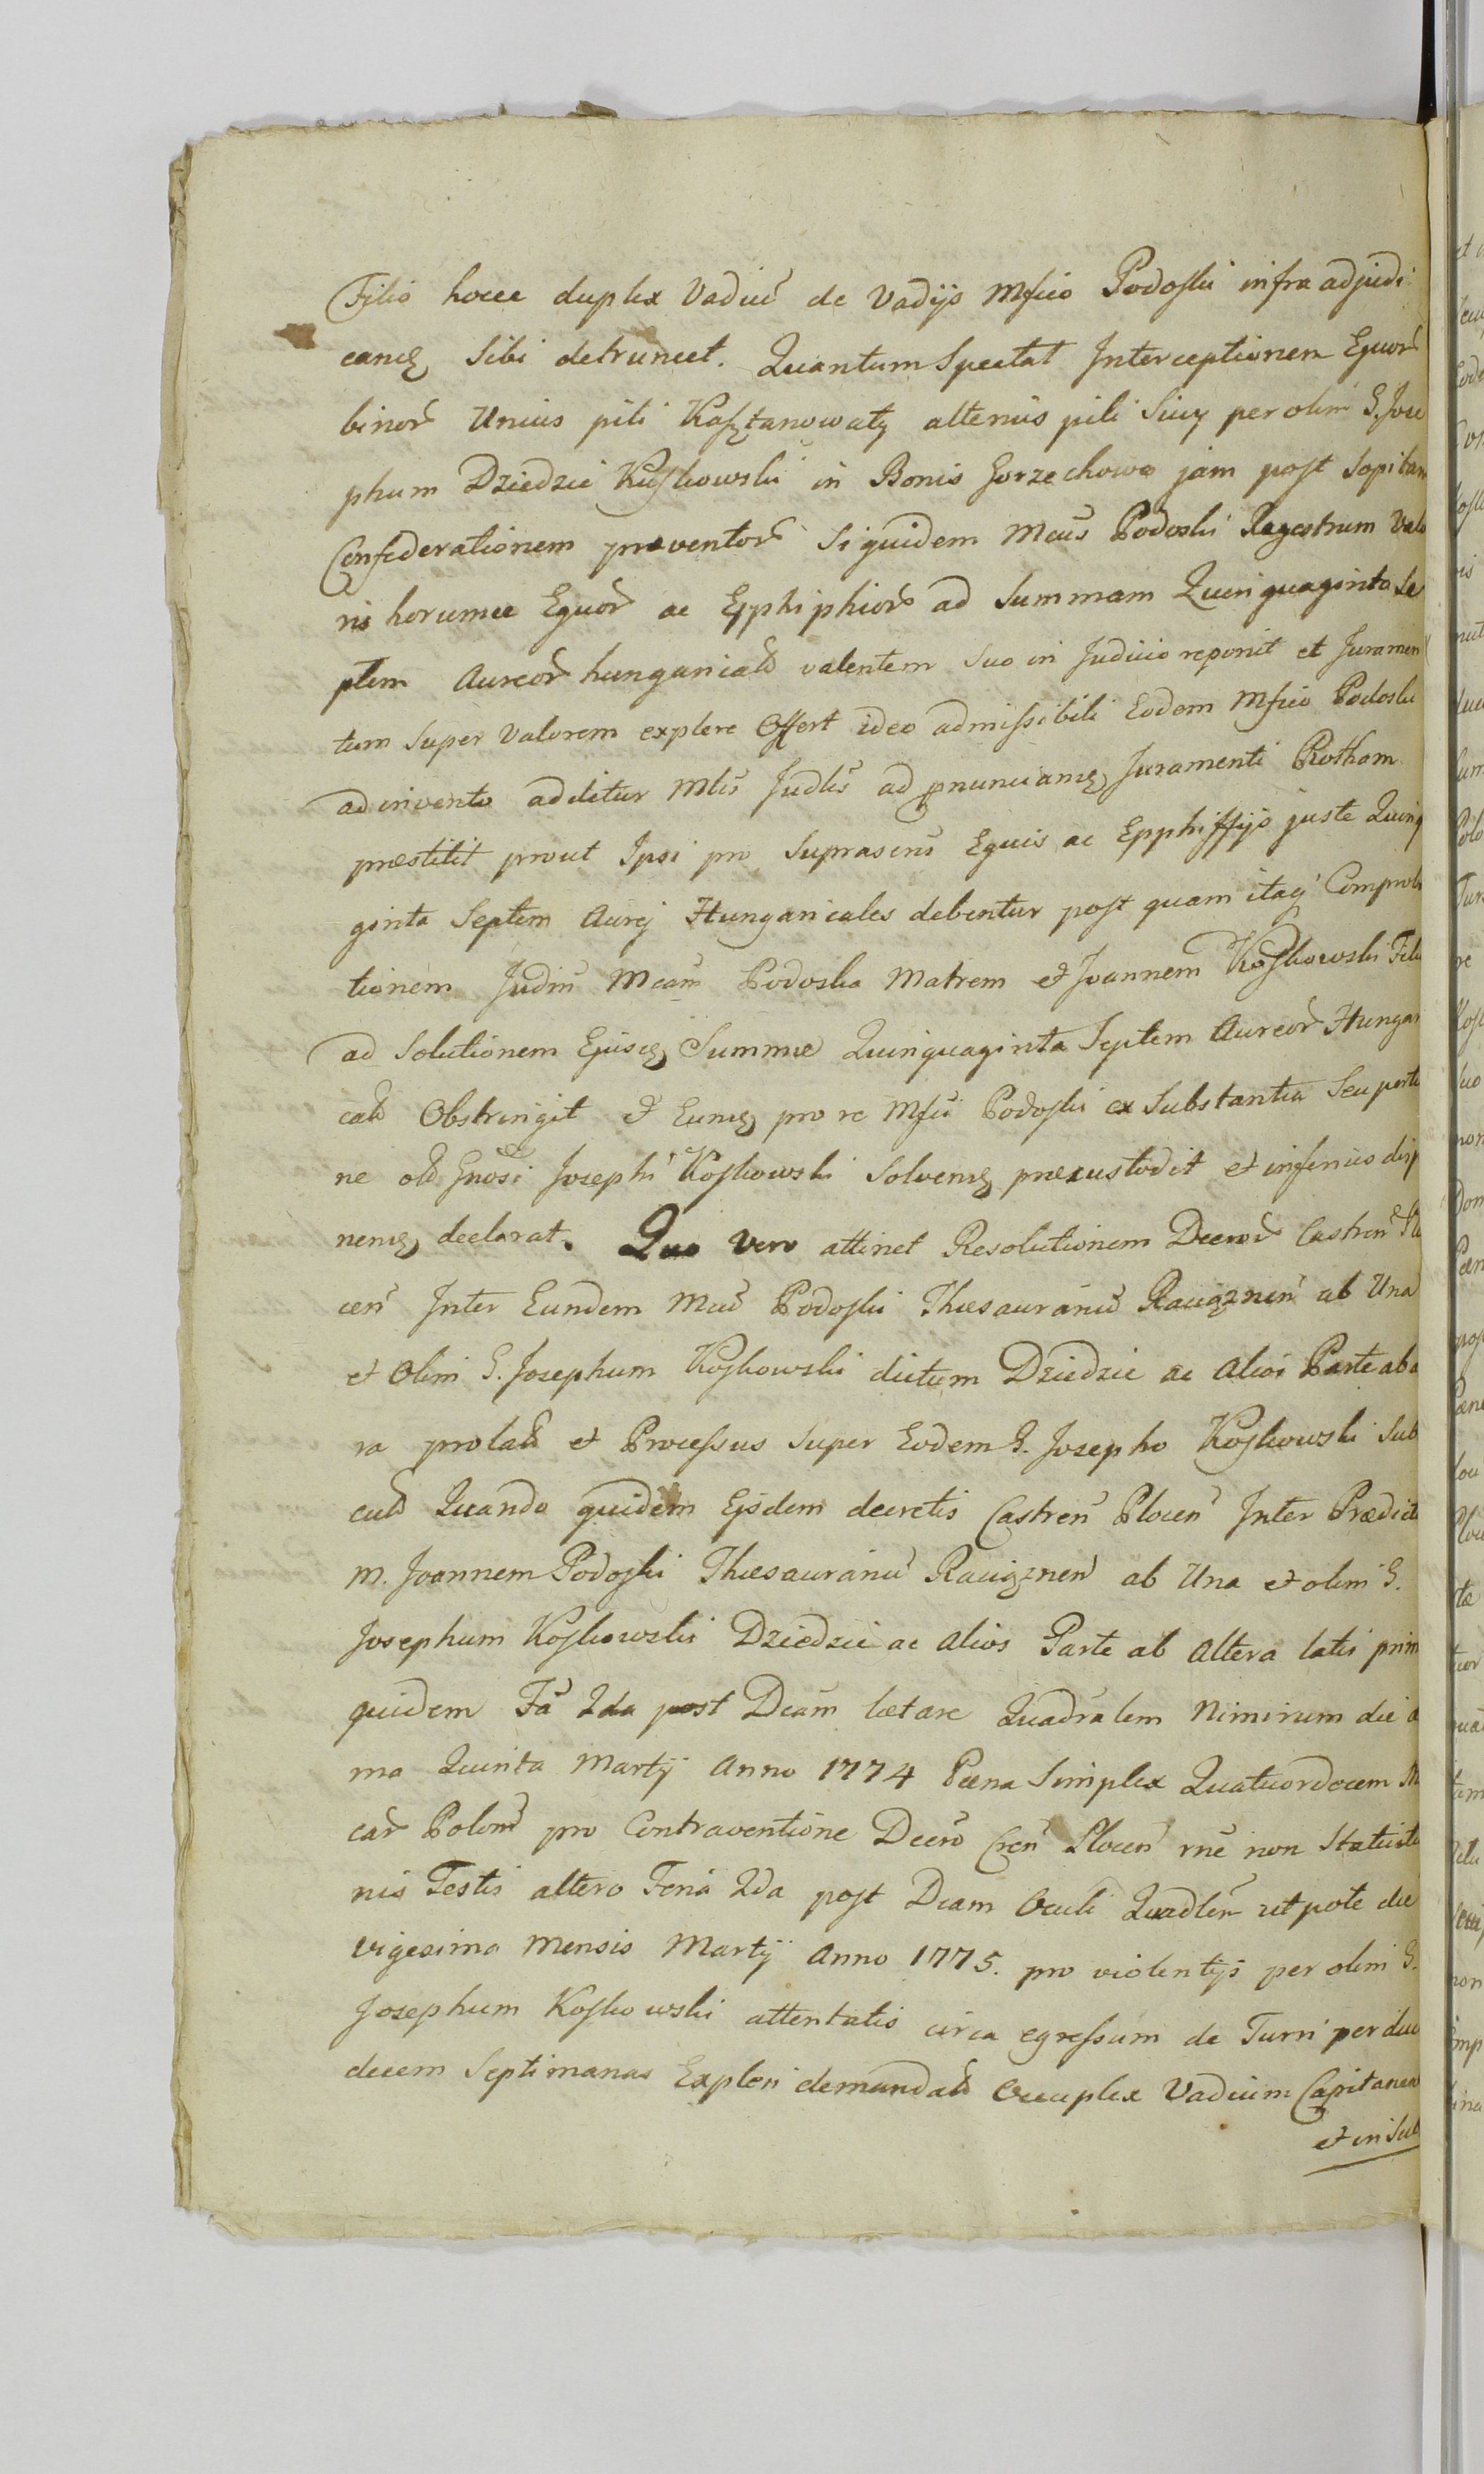 Filio hocce duplex Vadiu de Vadijs Mfico Podoski infra adjudi
cands Sibi detruncet. Quantum Spectat Interceptionem Equor
binor Unius pili Kasztanowaty alterius pili Siwy per olim G. Jose
phum Dziedzic Koskowski in Bonis Gorzechowo jam post Sopitam
Confederationem præventor Siquidem Mcus Podoski Regestrum Valo
ris horumce Equor ac Epphiphior ad Summam Quinquaginta Se
ptem Aureor hungarical valentem Suo in Judicio reponit et Juramen
tum Super Valorem explere Offert ideo admissibili Eodem Mfico Podoski
adinvento additur Mlis Judlis ad pnuncians Juramenti Rotham
præstitit prout Ipsi pro Suprascris Equis ac Epphiffijs juste Quinq
ginta Septem Aurej Hungaricales debentur post quam itaq Comproba
tionem Judm Mcam Podoska Matrem et Joannem Koskowski Fili
ad Solutionem Ejusd Summæ Quinquaginta Septem Aureor Hungari
cal Obstringit et Eums pro re Mfici Podoski ex Substantia Seu portio
ne ol Gnosi Josephi Koskowski Solvens præcustodit et inferius disp
nens declarat. Quo vero attinet Resolutionem Decror Castren Plo
cen Inter Eundem Mcu Podoski Thesauranu Raviaznen ab Una
et Olim G. Josephum Koskowski dictum Dziedzic ac Alios Parte ab a
ra prolat et Processus Super Eodem G. Josepho Koskowski Sub
cut Quando quidem Ejsdem decretis Castren Plocen Inter Prædict
M. Joannem Podoski Thesauranu Raviaznen ab Una et olim G.
Josephum Koskowski Dziedzic ac Alios Parte ab Altera latis prim
quidem Fa 2da post Dcam lætare Quadralem Nimirum die d
ma Quinta Martij Anno 1774 Pæna Simplex Quatuordecem M
car Polon pro Contraventione Decro Cren Plocen rne non Statuitio
nis Testis altero Feria 2da post Dcam Oculi Quadlem utpote die
vigesima Mensis Martij Anno 1775. pro violentijs per olim G.
Josephum Koskowski attentatis circa egressum de Turri per duo
decem Septimanas Expleri demandat Occuplex Vadium Capitanea
et in Sub